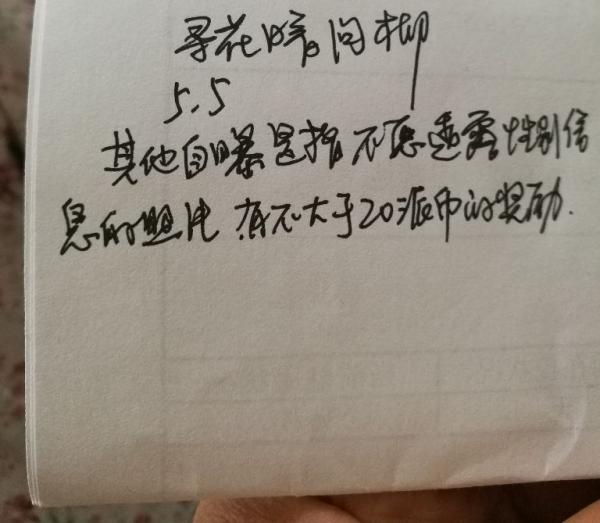 寻花暗问柳
5.5
其他自曝是指不愿透露性别信
息的照片 有不大于20派币的奖励.